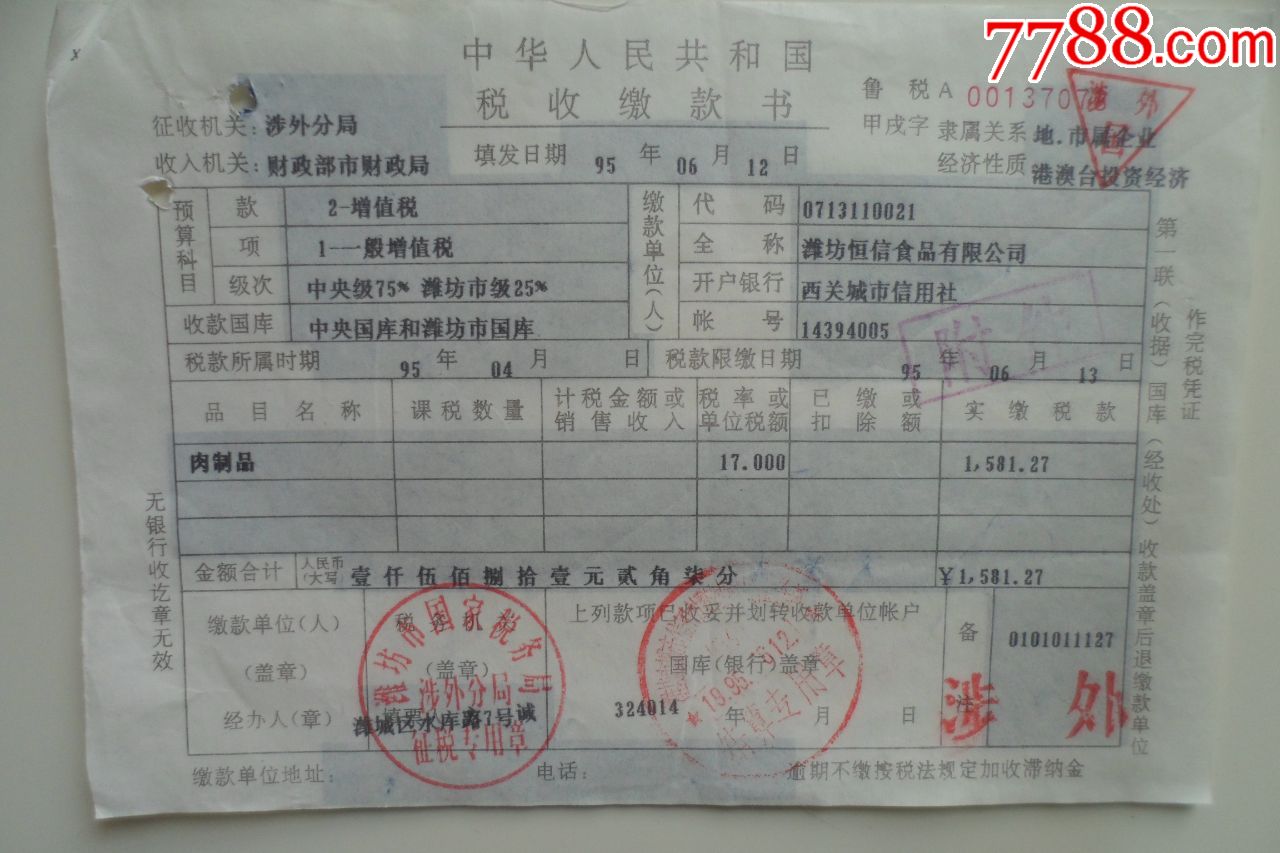 7788.com
中华人民共和国
税收缴款书
鲁税A 0013707
甲戌字
征收机关：涉外分局
隶属关系 地.市属企业
收入机关：财政部市财政局
填发日期 95 年 06 月 12 日
经济性质 港澳台投资经济
涉外
预算科目
款 2-增值税
项 1-一般增值税
级次 中央级75% 潍坊市级25%
收款国库 中央国库和潍坊市国库
缴款单位(人)
代码 0713110021
全称 潍坊恒信食品有限公司
开户银行 西关城市信用社
帐号 14394005
税款所属时期 95 年 04 月 日
税款限缴日期 95 年 06 月 13 日
附
品目名称 课税数量 计税金额或销售收入 税率或单位税额 已缴或扣除额 实缴税款
肉制品 17.000 1,581.27
金额合计 人民币(大写) 壹仟伍佰捌拾壹元贰角柒分 ￥1,581.27
缴款单位(人)
(盖章)
经办人(章)
税务机关
(盖章)
填票人
潍城区水库路7号诚
潍坊市国家税务局
涉外分局
征税专用章
上列款项已收妥并划转收款单位帐户
国库(银行)盖章
324014 年 月 日
专用章
备注
0101011127
涉外
缴款单位地址：
电话：
逾期不缴按税法规定加收滞纳金
无银行收讫章无效
第一联(收据)国库(经收处)收款盖章后退缴款单位
作完税凭证